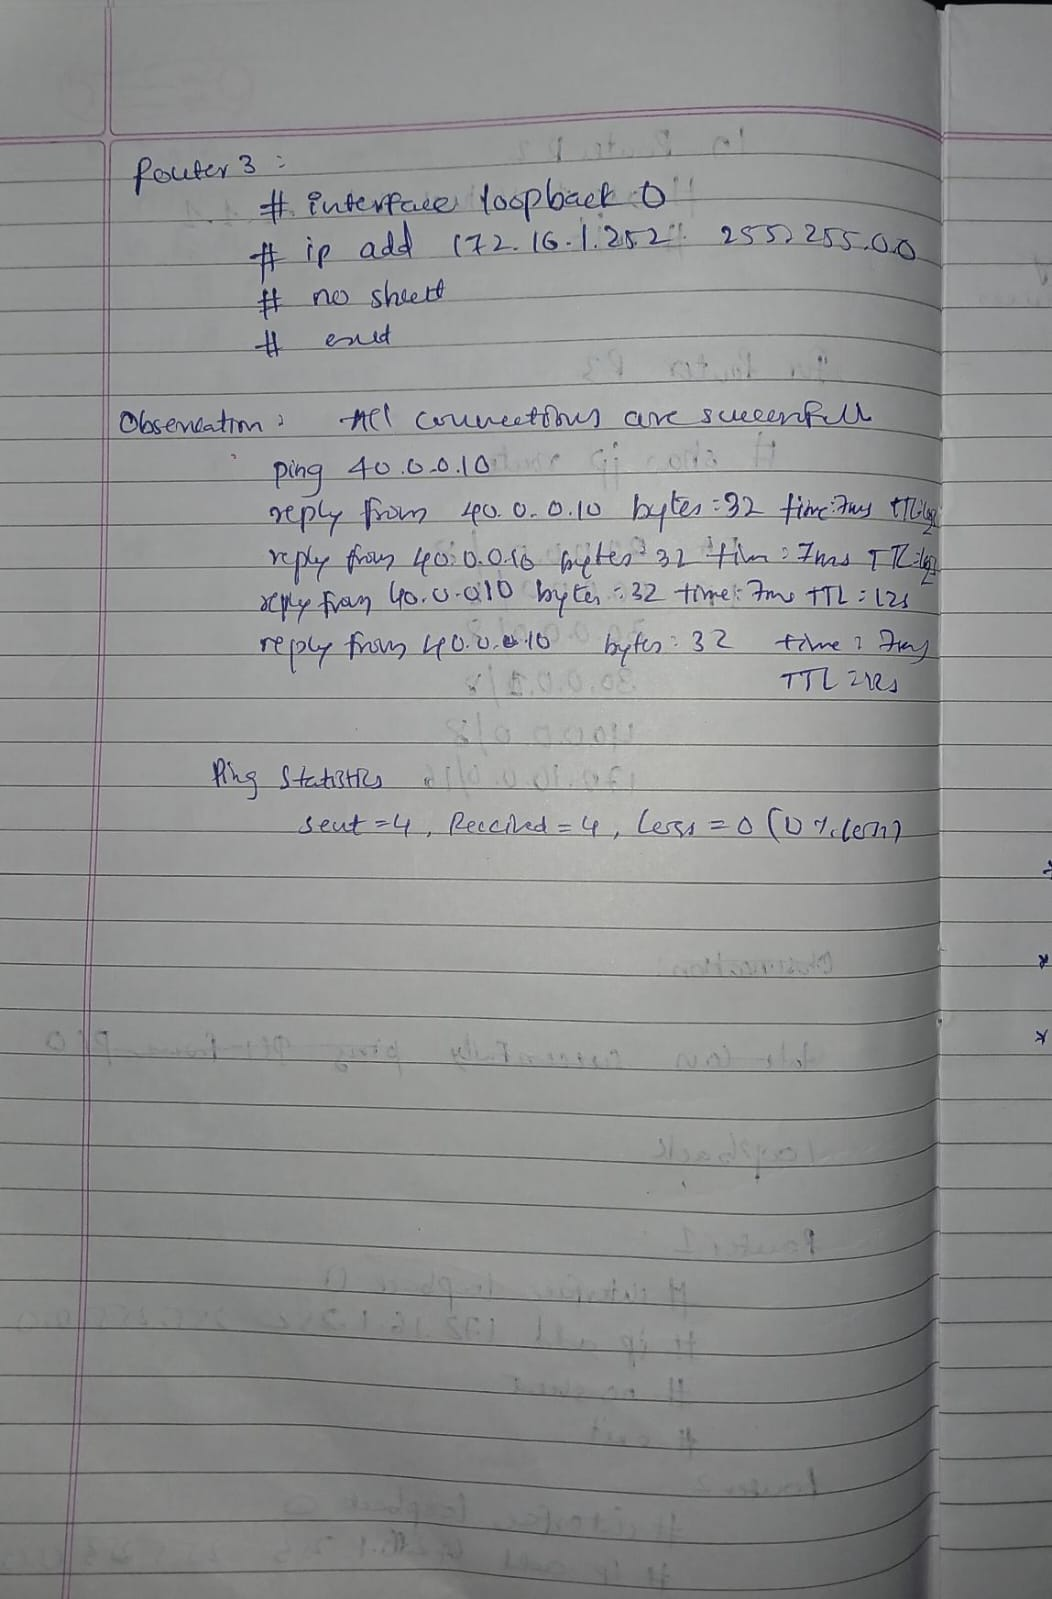 Router 3 :
# interface loopback 0
# ip add 172.16.1.252 255.255.0.0
# no shutt
# exit
Observation : All connections are successfull
ping 40.0.0.10
reply from 40.0.0.10 bytes = 32 time: 7ms TTL:
reply from 40.0.0.10 bytes = 32 time = 7ms TTL:
reply from 40.0.0.10 bytes = 32 time: 7ms TTL = 125
reply from 40.0.0.10 bytes : 32 time = 7ms
TTL = 125
Ping Statistics
sent = 4, Received = 4, Loss = 0 (0% loss)